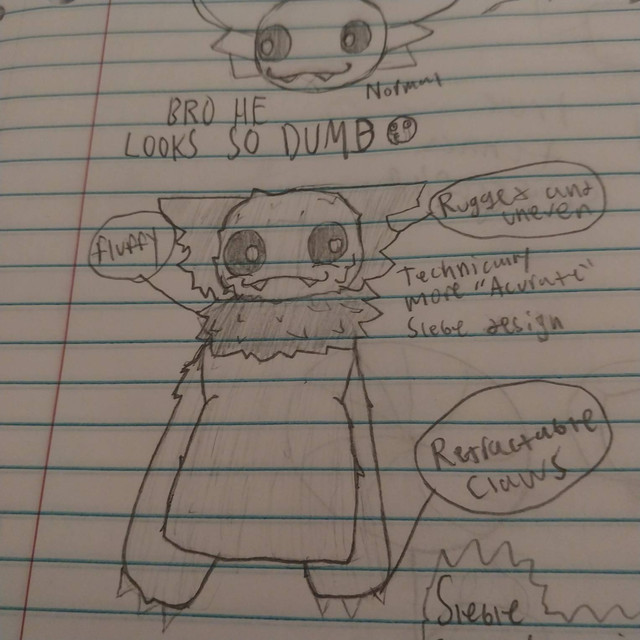 Normal
BRO HE
LOOKS SO DUMB
Rugged and
uneven
fluffy
Technically
more "Acurate"
Slebe design
Retractable
claws
Slebie